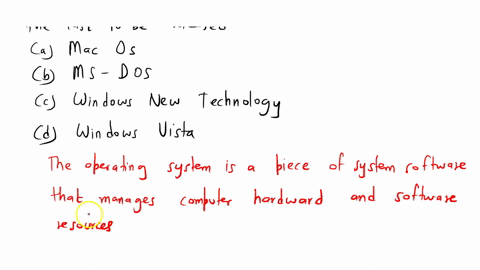 to be
(a) Mac Os
(b) MS-DOS
(c) Windows New Technology
(d) Windows Vista
The operating system is a piece of system software
that manages computer hardward and software
resources